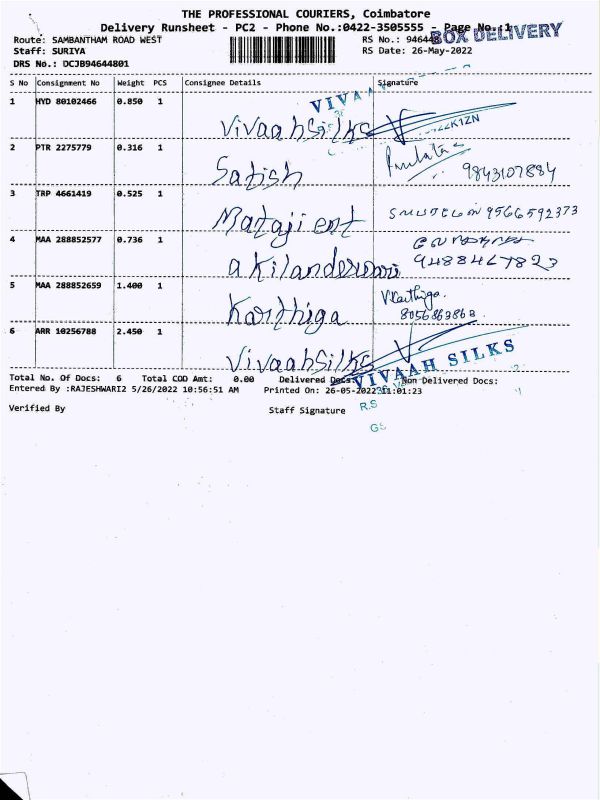 THE PROFESSIONAL COURIERS, Coimbatore
Delivery Runsheet - PC2 - Phone No.:0422-3505555 - Page No.:1
BOX DELIVERY
Route: SAMBANTHAM ROAD WEST
RS No.: 94644801
Staff: SURIYA
RS Date: 26-May-2022
DRS No.: DCJB94644801
S No Consignment No Weight PCS Consignee Details Signature
1 HYD 80102466 0.850 1 Vivaahsilks
2 PTR 2275779 0.316 1 Satish 9843107884
3 TRP 4661419 0.525 1 Mataji ent 9566592373
4 MAA 288852577 0.736 1 akilandeswari 9488467823
5 MAA 288852659 1.400 1 Karthiga V Karthiga. 8056863863
6 ARR 10256788 2.450 1 Vivaahsilks
VIVAAH SILKS
Total No. Of Docs: 6 Total COD Amt: 0.00 Delivered Docs: Non Delivered Docs:
Entered By :RAJESHWARI2 5/26/2022 10:56:51 AM Printed On: 26-05-2022 11:01:23
Verified By Staff Signature
R.S
GS